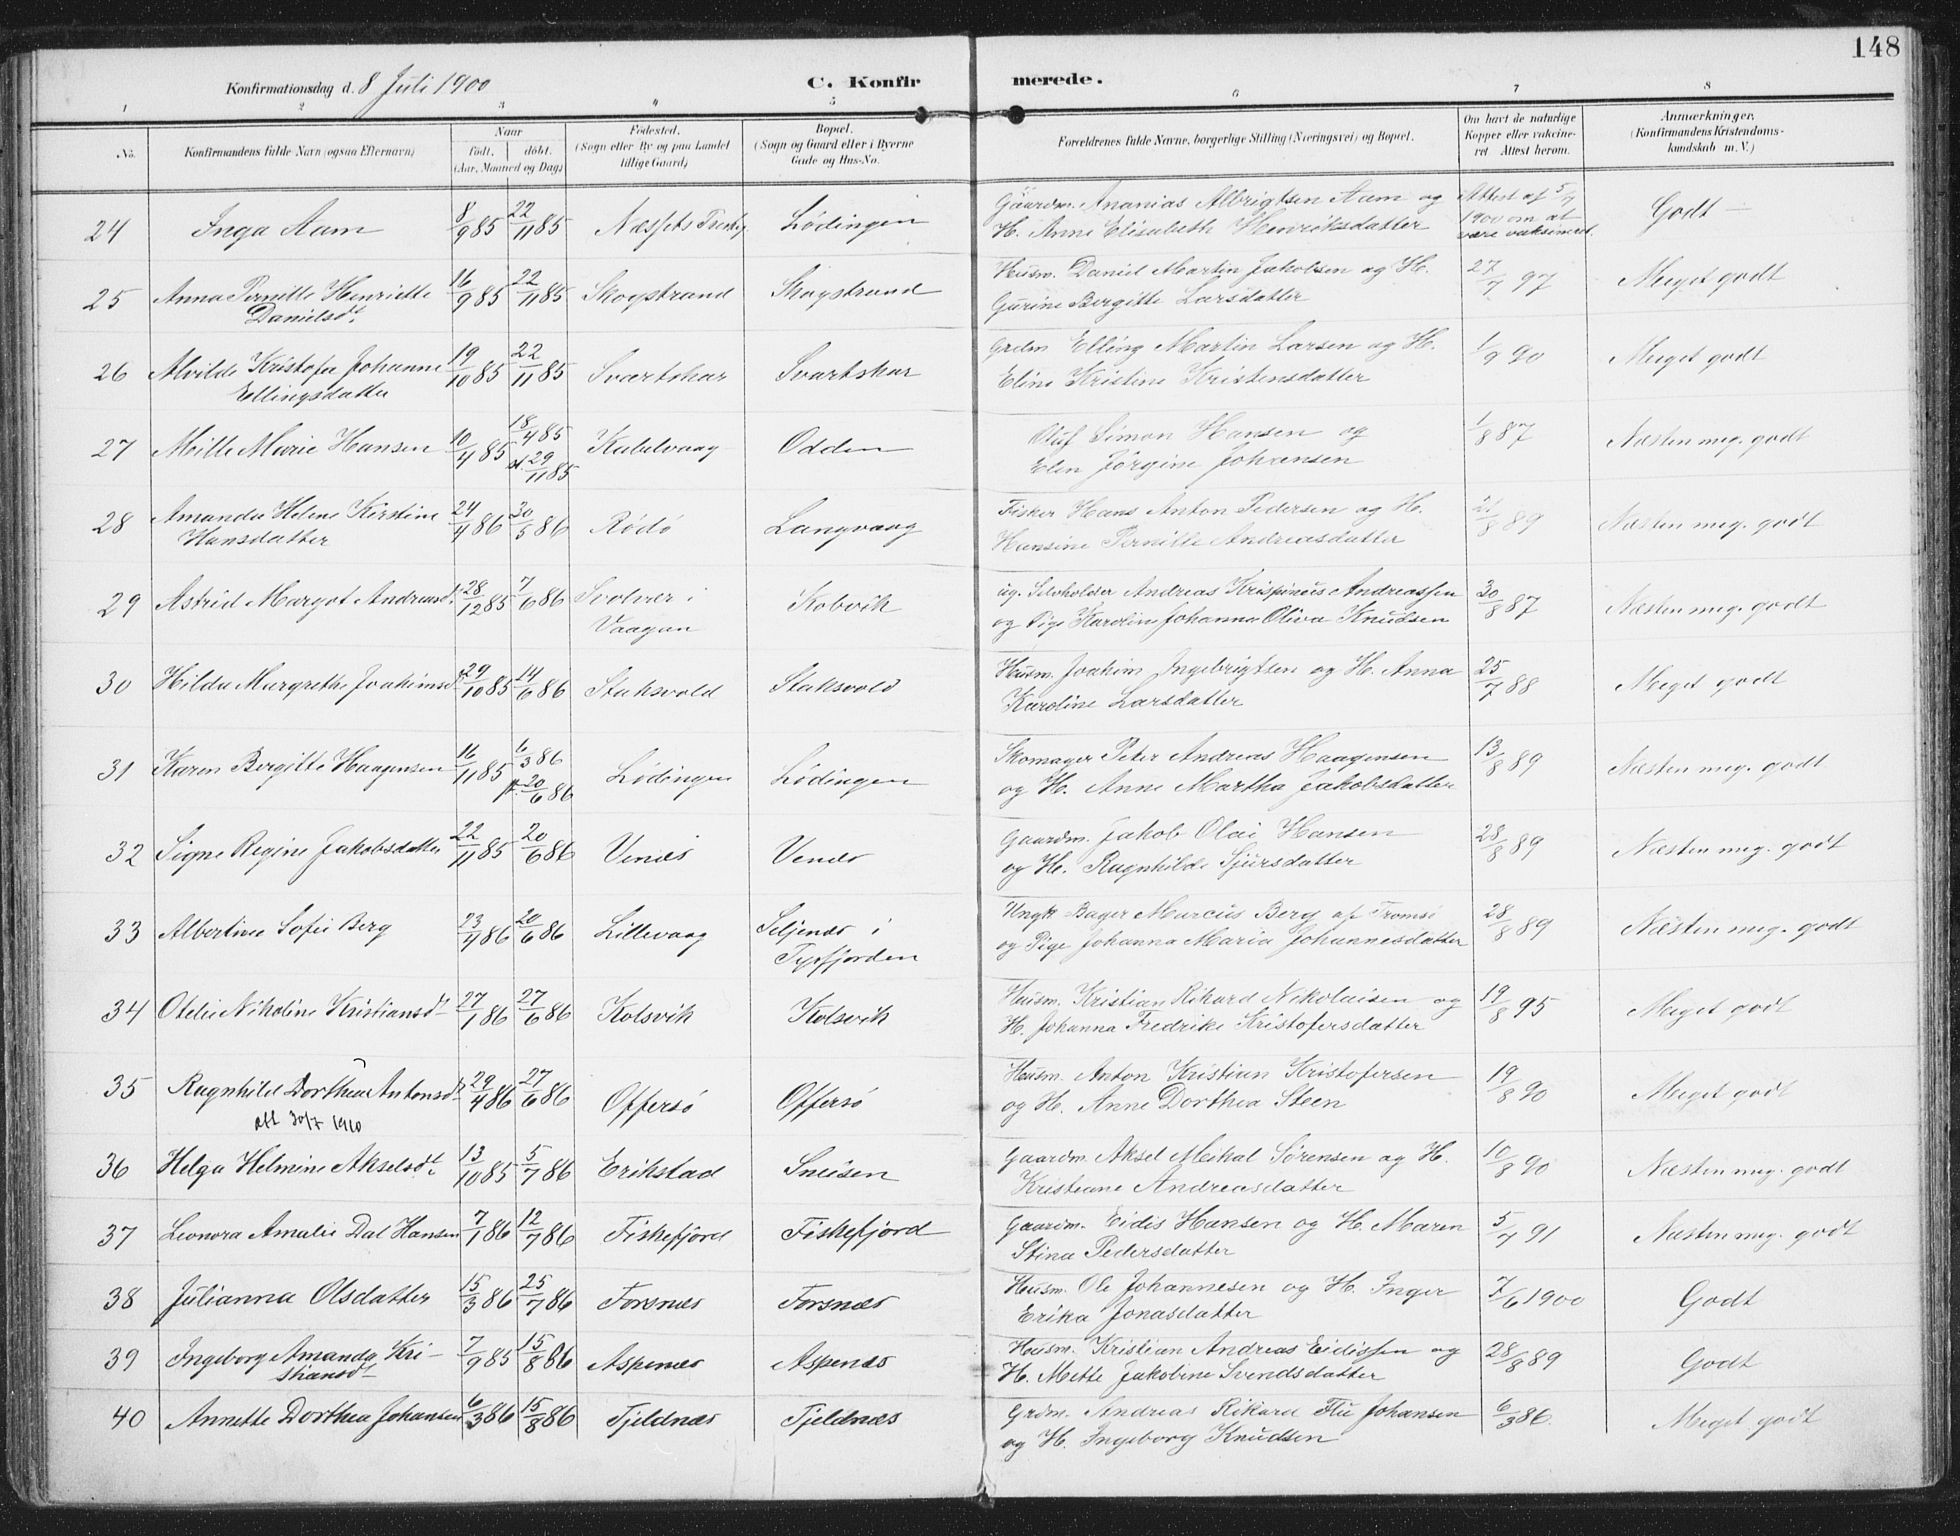 148
Konfirmationsdag d. 8 Juli 1900 C. Konfirmerede.
1 2 3 4 5 6 7 8
No. Konfirmandens fulde Navn (ogsaa Efternavn) Naar født, døbt, (Aar, Maaned og Dag) Fødested, (Sogn eller By og paa Landet tillige Gaard) Bopæl, (Sogn og Gaard eller i Byerne Gade og Hus-No. Forældrenes fulde Navne, borgerlige Stilling (Næringsvei) og Bopæl. Om havt de naturlige Kopper eller vakcineret. Attest herom. Anmærkninger, (Konfirmandens Kristendomskundskab m. V.)
24 Inga Aam 8/9 85 22/11 85 Lødingen Gaardm. Ananias Albrigtsen Aam og Attest af 5/7 Godt –
H. Anne Elisabeth Henriksdatter 1900 om at være vaksineret.
25 Anna Pernille Henriette 16/9 85 22/11 85 Skogstrand Skogstrand Husm. Daniel Martin Jakobsen og H. 27/7 97 Meget godt
Danielsdt. Gurine Bergitte Larsdatter
26 Alvilde Kristofa Johanne 19/10 85 22/11 85 Svartskar Svartskar Grdm Elling Martin Larsen og H. 1/9 90 Meget godt
Ellingsdatter Eline Kristine Kristensdatter
27 Milla Marie Hansen 10/4 85 18/4 85 Kabelvaag Odden Oluf Simon Hansen og 1/8 87 Næsten meg. godt
st. 29/11 85 Elen Jørgine Johansen
28 Amanda Helene Kirstine 24/4 86 30/5 86 Rødø Langvaag Fisker Hans Anton Pedersen og H. 21/8 89 Næsten meg. godt
Hansdatter Hansine Pernille Andreasdatter
29 Astrid Margot Andreasd. 28/12 85 7/6 86 Svolvær i Kobvik ug. Selvholder Andreas Krispinus Andreassen 30/8 87 Næsten meg. godt
Vaagan og Pige Karoline Johanna Oliva Knudsen
30 Hilda Margrethe Joakimsd. 29/10 85 14/6 86 Staksvold Staksvold Husm. Joakim Ingebrigtsen og H. Anna 25/7 88 Meget godt
Karoline Larsdatter
31 Karen Bergitte Haagensen 16/11 85 6/3 86 Lødingen Lødingen Skomager Peter Andreas Haagensen 13/8 89 Næsten meg. godt
20/6 86 og H. Anne Martha Jakobsdatter
32 Signe Regine Jakobsdatter 22/11 85 20/6 86 Venæs Venæs Gaardm. Jakob Olai Hansen 28/8 89 Næsten meg. godt
og H. Ragnhilde Sjursdatter
33 Albertine Sofie Berg 23/4 86 20/6 86 Lillevaag Seljenæs i Ungk. Bager Marcus Berg af Tromsø 28/8 89 Næsten meg. godt
Tysfjorden og Pige Johanna Maria Johannesdatter
34 Otelie Nikoline Kristiansdt 27/1 86 27/6 86 Kolsvik Kolsvik Husm. Kristian Rikard Nikolaisen og 19/8 95 Meget godt
H. Johanna Fredrike Kristofersdatter
35 Ragnhild Dorthea Antonsd. 29/4 86 27/6 86 Offersø Offersø Husm. Anton Kristian Kristofersen 19/8 90 Meget godt
att 30/7 1910 og H. Anne Dorthea Steen
36 Helga Helmine Akselsdt. 13/10 85 5/7 86 Erikstad Sneisen Gaardm. Aksel Meikal Sørensen og H. 10/8 90 Næsten meg. godt
Kristiane Andreasdatter
37 Leonora Amalie Dal Hansen 7/1 86 12/7 86 Fiskefjord Fiskefjord Gaardm. Eidis Hansen og H. Maren 5/7 91 Næsten meg. godt
Stina Pedersdatter
38 Julianna Olsdatter 15/3 86 25/7 86 Forsnæs Forsnæs Husm. Ole Johannesen og H. Inger 7/6 1900 Godt
Erika Jonasdatter
39 Ingeborg Amanda Kri- 7/9 85 15/8 86 Aspenæs Aspenæs Husm. Kristian Andreas Eidissen og 28/8 89 Godt
stiansdt H. Mette Jakobine Svendsdatter
40 Annette Dorthea Johansen 6/3 86 15/8 86 Tjeldnæs Tjeldnæs Grdm. Andreas Rikard Johansen 6/3 86. Meget godt
og H. Ingeborg Knudsen